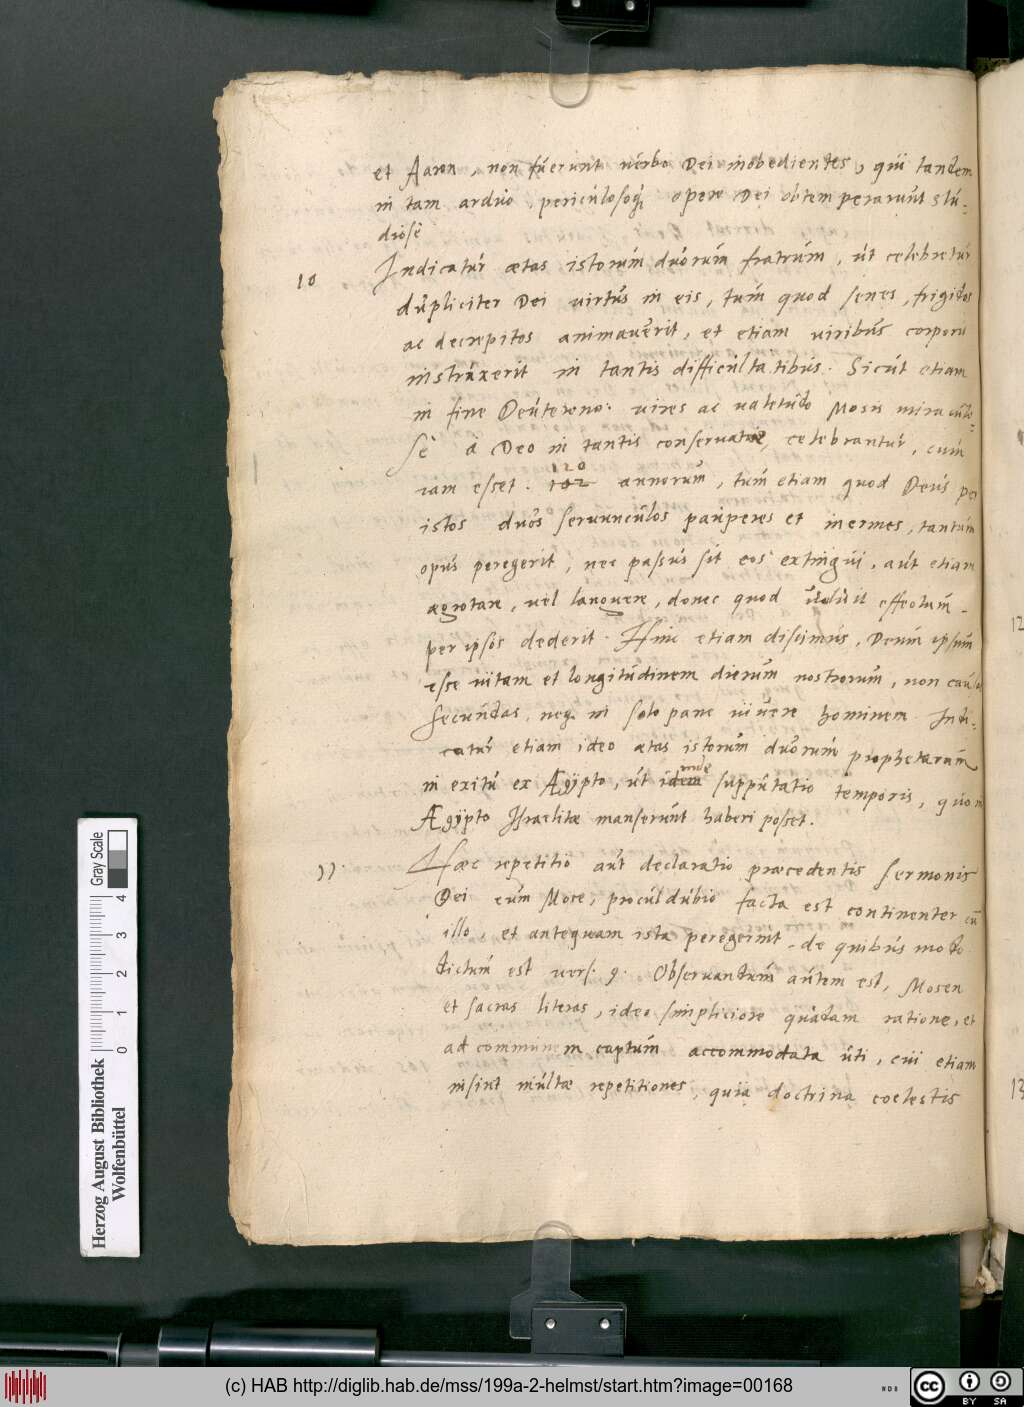 et Aaron, non fuerunt verbo Dei inobedientes, qui tandem
in tam arduo, periculosoq; opere Dei obtemperarunt stu-
diosè
10 Indicatur ætas istorum duorum fratrum, ut celebretur
dupliciter Dei virtus in eis, tum quod senes, frigidos
ac decrepitos animaverit, et etiam viribus corporis
instruxerit in tantis difficultatibus. Sicut etiam
in fine Deuterono: vires ac valetudo Mosis miraculo-
sè à Deo in tantis conservatæ, celebrantur, cum
iam esset. 120 annorum, tum etiam quod Deus per
istos duos servunculos pauperes et inermes, tantum
opus peregerit, nec passus sit eos extingui, aut etiam
ægrotare, vel languere, donec quod voluit effectum
per ipsos dederit. Hinc etiam discimus, Deum ipsum
esse vitam et longitudinem dierum nostrorum, non causas
secundas, neq; in solo pane vivere hominem. Indi-
catur etiam ideo ætas istorum duorum prophetarum
in exitu ex Ægypto, ut inde supputatio temporis, quo in
Ægypto Israelitæ manserunt haberi posset.
11. Hæc repetitio aut declaratio præcedentis sermonis
Dei cum Mose, proculdubio facta est continenter cū
illo, et antequam ista peregerint, de quibus modo
dictum est vers. 9. Observandum autem est, Mosen
et sacras literas, ideo simpliciore quadam ratione, et
ad communem captum accommodata uti, cui etiam
insint multæ repetitiones, quia doctrina coelestis
12
13
Gray Scale
0 1 2 3 4
Herzog August Bibliothek
Wolfenbüttel
(c) HAB http://diglib.hab.de/mss/199a-2-helmst/start.htm?image=00168
cc BY SA